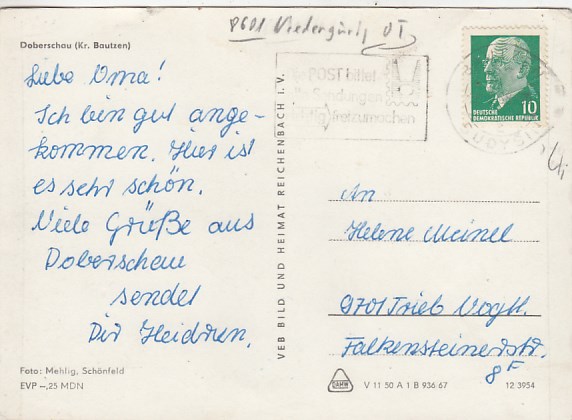 8601 Niedergurig OT
Doberschau (Kr. Bautzen)
Liebe Oma!
Ich bin gut ange-
kommen. Hier ist
es sehr schön.
Viele Grüße aus
Doberschau
sendet
Dir Heidrun.
Foto: Mehlig, Schönfeld
EVP –,25 MDN
VEB BILD UND HEIMAT REICHENBACH I. V.
POST bittet
Sendungen
freizumachen
10
DEUTSCHE
DEMOKRATISCHE REPUBLIK
An
Helene Meinel
9701 Trieb Vogtl.
Falkensteinerstr.
8F
V 11 50 A 1 B 936 67
12 3954